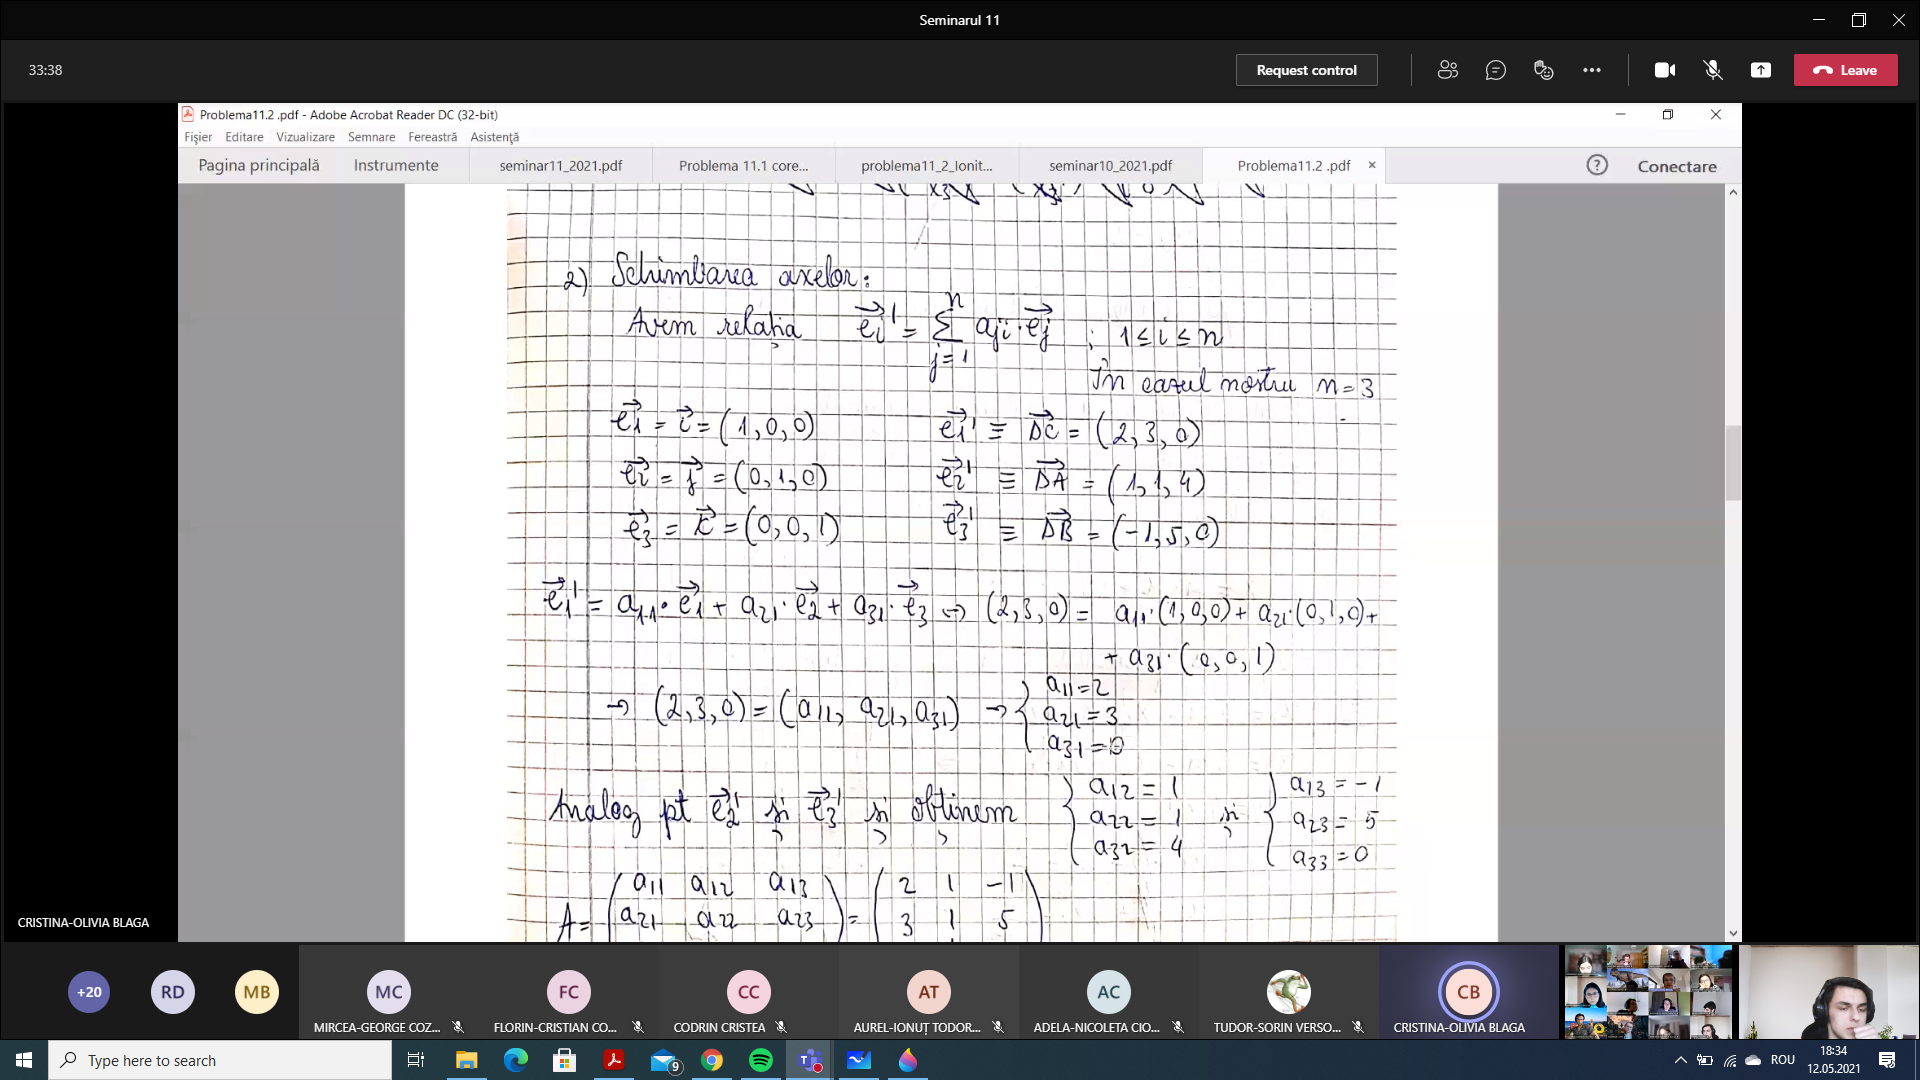 Seminarul 11
33:38
Request control
Leave
Problema11.2 .pdf - Adobe Acrobat Reader DC (32-bit)
Fișier Editare Vizualizare Semnare Fereastră Asistență
Pagina principală Instrumente seminar11_2021.pdf Problema 11.1 core... problema11_2_Ionit... seminar10_2021.pdf Problema11.2 .pdf × Conectare
2) Schimbarea axelor:
Avem relația e⃗i' = Σ_{j=1}^{n} aji · e⃗j ; 1 ≤ i ≤ n
În cazul nostru n = 3
e⃗1 = i⃗ = (1, 0, 0) e⃗1' ≡ DC⃗ = (2, 3, 0)
e⃗2 = j⃗ = (0, 1, 0) e⃗2' ≡ DA⃗ = (1, 1, 4)
e⃗3 = k⃗ = (0, 0, 1) e⃗3' ≡ DB⃗ = (-1, 5, 0)
e⃗1' = a11 · e⃗1 + a21 · e⃗2 + a31 · e⃗3 → (2, 3, 0) = a11·(1, 0, 0) + a21·(0, 1, 0) +
+ a31·(0, 0, 1)
→ (2, 3, 0) = (a11, a21, a31) → { a11 = 2
a21 = 3
a31 = 0
Analog pt e⃗2' și e⃗3' și obținem { a12 = 1 și { a13 = -1
a22 = 1 a23 = 5
a32 = 4 a33 = 0
A = ( a11 a12 a13 ) = ( 2 1 -1 )
a21 a22 a23 3 1 5
CRISTINA-OLIVIA BLAGA
+20 RD MB MC FC CC AT AC CB
MIRCEA-GEORGE COZ... FLORIN-CRISTIAN CO... CODRIN CRISTEA AUREL-IONUȚ TODOR... ADELA-NICOLETA CIO... TUDOR-SORIN VERSO... CRISTINA-OLIVIA BLAGA
Type here to search
9
ROU
18:34
12.05.2021